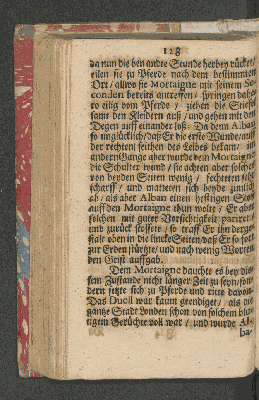 118
da nun die benandte Stunde herbey rücket/
eilen sie zu Pferde nach dem bestimmten
Ort / allwo sie Mortaigne mit seinem Se-
conden bereits antreffen / springen dahe-
ro eilig vom Pferde / ziehen die Stiefel
samt den Kleidern auß / und gehen mit dem
Degen auff einander loß: Da denn Alban
so unglücklich / daß Er die erste Wunde auff
der rechten seithen des Leibes bekam / im
andern Gange aber wurde dem Mortaigne
die Schulter wund / sie achten aber solches
von beyden Seiten wenig / fechteten sehr
scharff / und matteten sich beyde zimlich
ab / als aber Alban einen hefftigen Stoß
auff den Mortaigne thun wolte / Er aber
solchen mit guter Vorsichtigkeit parirete
und zurück stossete / so traff Er ihn derge-
stalt oben in die lincke Seiten / daß Er so fort
zur Erden stürtzte / und nach wenig Worten
den Geist auffgab.
Dem Mortaigne dauchte es bey die-
sem Zustande nicht länger Zeit zu seyn / son-
dern setzte sich zu Pferde und ritte davon.
Das Duell war kaum geendiget / als die
gantze Stadt Londen schon von solchem blu-
tigem Gerüchte voll war / und wurde Al-
ba-